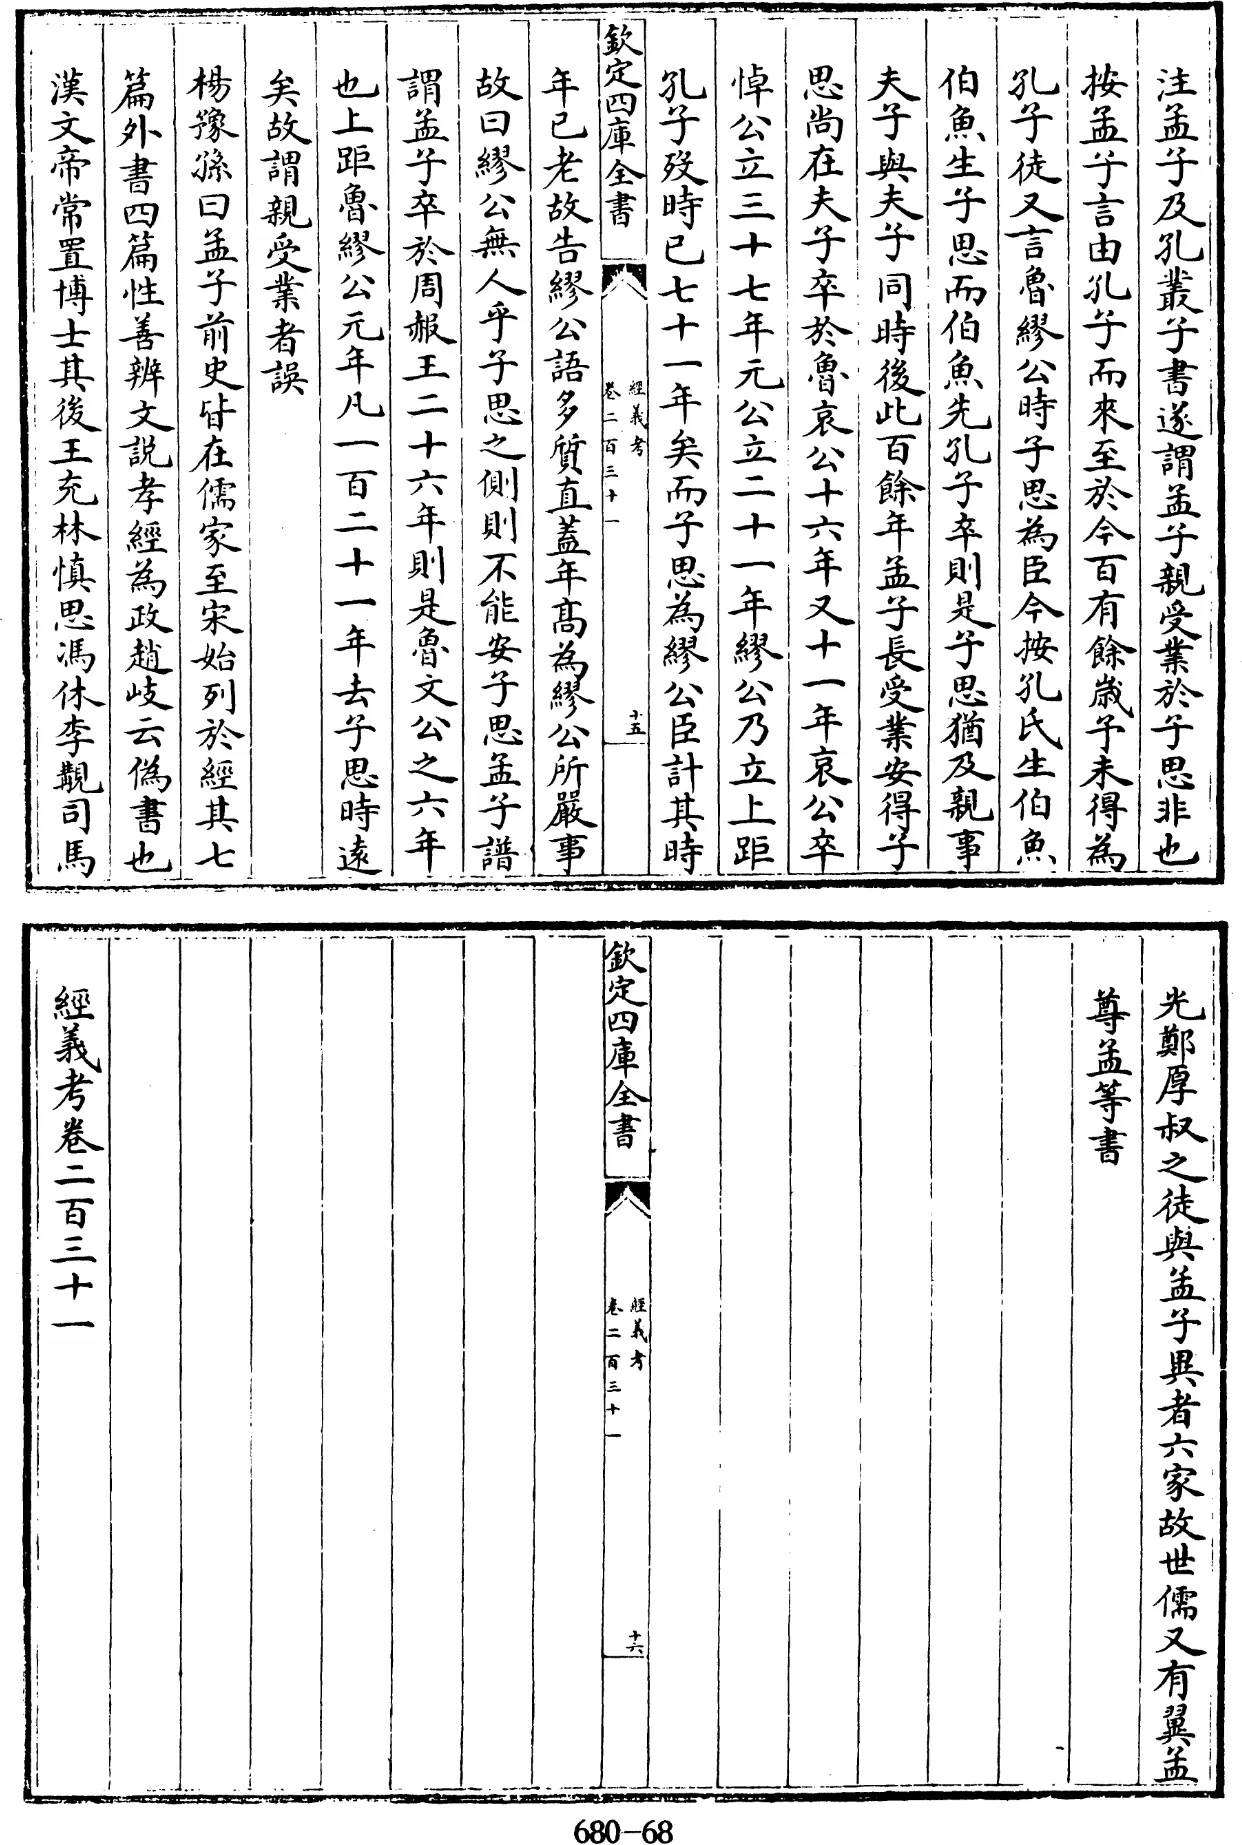 注孟子及孔叢子書遂謂孟子親受業於子思非也
按孟子言由孔子而來至於今百有餘歲予未得為
孔子徒又言魯繆公時子思為臣今按孔氏生伯魚
伯魚生子思而伯魚先孔子卒則是子思猶及親事
夫子與夫子同時後此百餘年孟子長受業安得子
思尚在夫子卒於魯哀公十六年又十一年哀公卒
悼公立三十七年元公立二十一年繆公乃立上距
孔子歿時已七十一年矣而子思為繆公臣計其時
欽定四庫全書
經義考
卷二百三十一
十五
年已老故告繆公語多質直蓋年髙為繆公所嚴事
故曰繆公無人乎子思之側則不能安子思孟子譜
謂孟子卒於周赧王二十六年則是魯文公之六年
也上距魯繆公元年凡一百二十一年去子思時遠
矣故謂親受業者誤
楊豫孫曰孟子前史皆在儒家至宋始列於經其七
篇外書四篇性善辨文説孝經為政趙岐云偽書也
漢文帝常置博士其後王充林慎思馮休李覯司馬
光鄭厚叔之徒與孟子異者六家故世儒又有翼孟
尊孟等書
欽定四庫全書
經義考
卷二百三十一
十六
經義考卷二百三十一
680-68